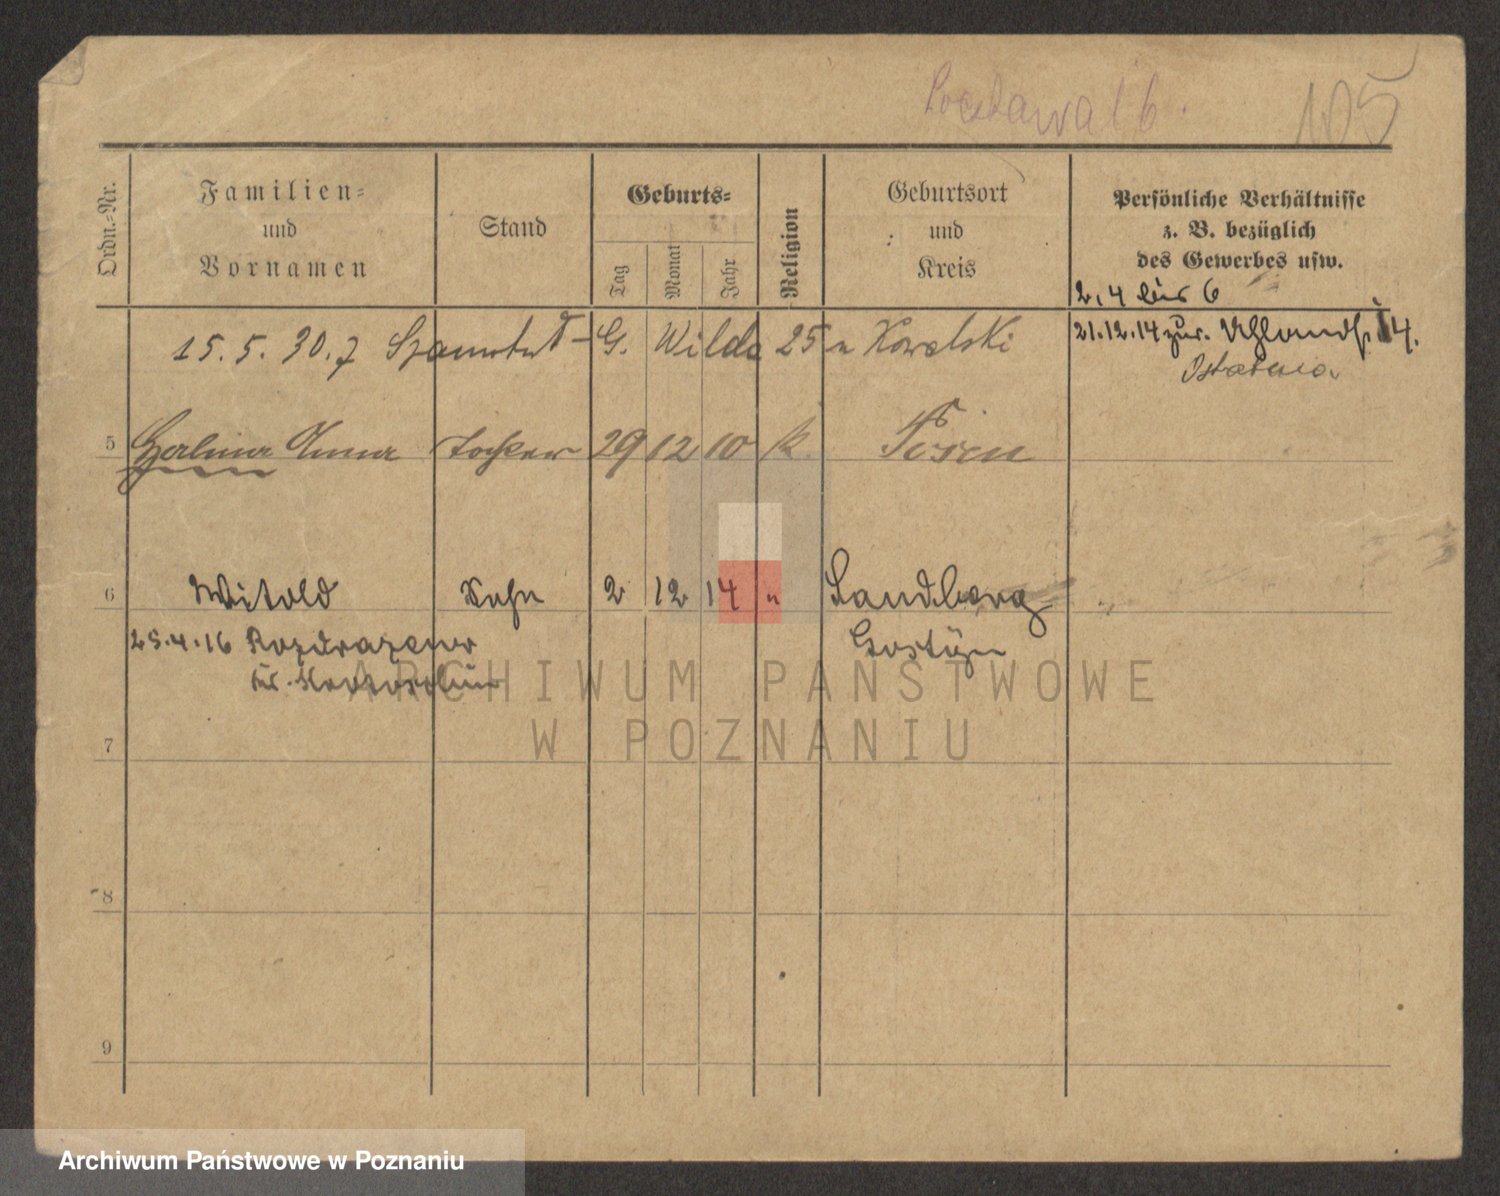 105
Ordn.-Nr.
Familien-
und
Vornamen
Stand
Geburts-
Tag
Monat
Jahr
Religion
Geburtsort
und
Kreis
Persönliche Verhältnisse
z. B. bezüglich
des Gewerbes usw.
2, 4 bis 6
15.5. 30.7 G. Wilda 25 Kowalski
21.12.14 zur. Uhlandst. 14.
Ostatnia
5 Halina Anna Tochter 29 12 10 k. Posen
6 Witold Sohn 2 12 14 " Sandberg
25.4.16 Gostyn
7
8
9
ARCHIWUM PAŃSTWOWE
W POZNANIU
Archiwum Państwowe w Poznaniu